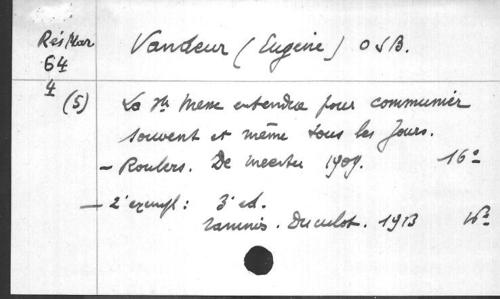 Rés Mar Vandeur (Eugène) OSB.
64
4
(5) La Ste Messe entendue pour communier
souvent et même tous les jours.
– Roulers. De Meester 1909. 16°
– 2e exempl: 3e ed.
Duculot. 1913 16°